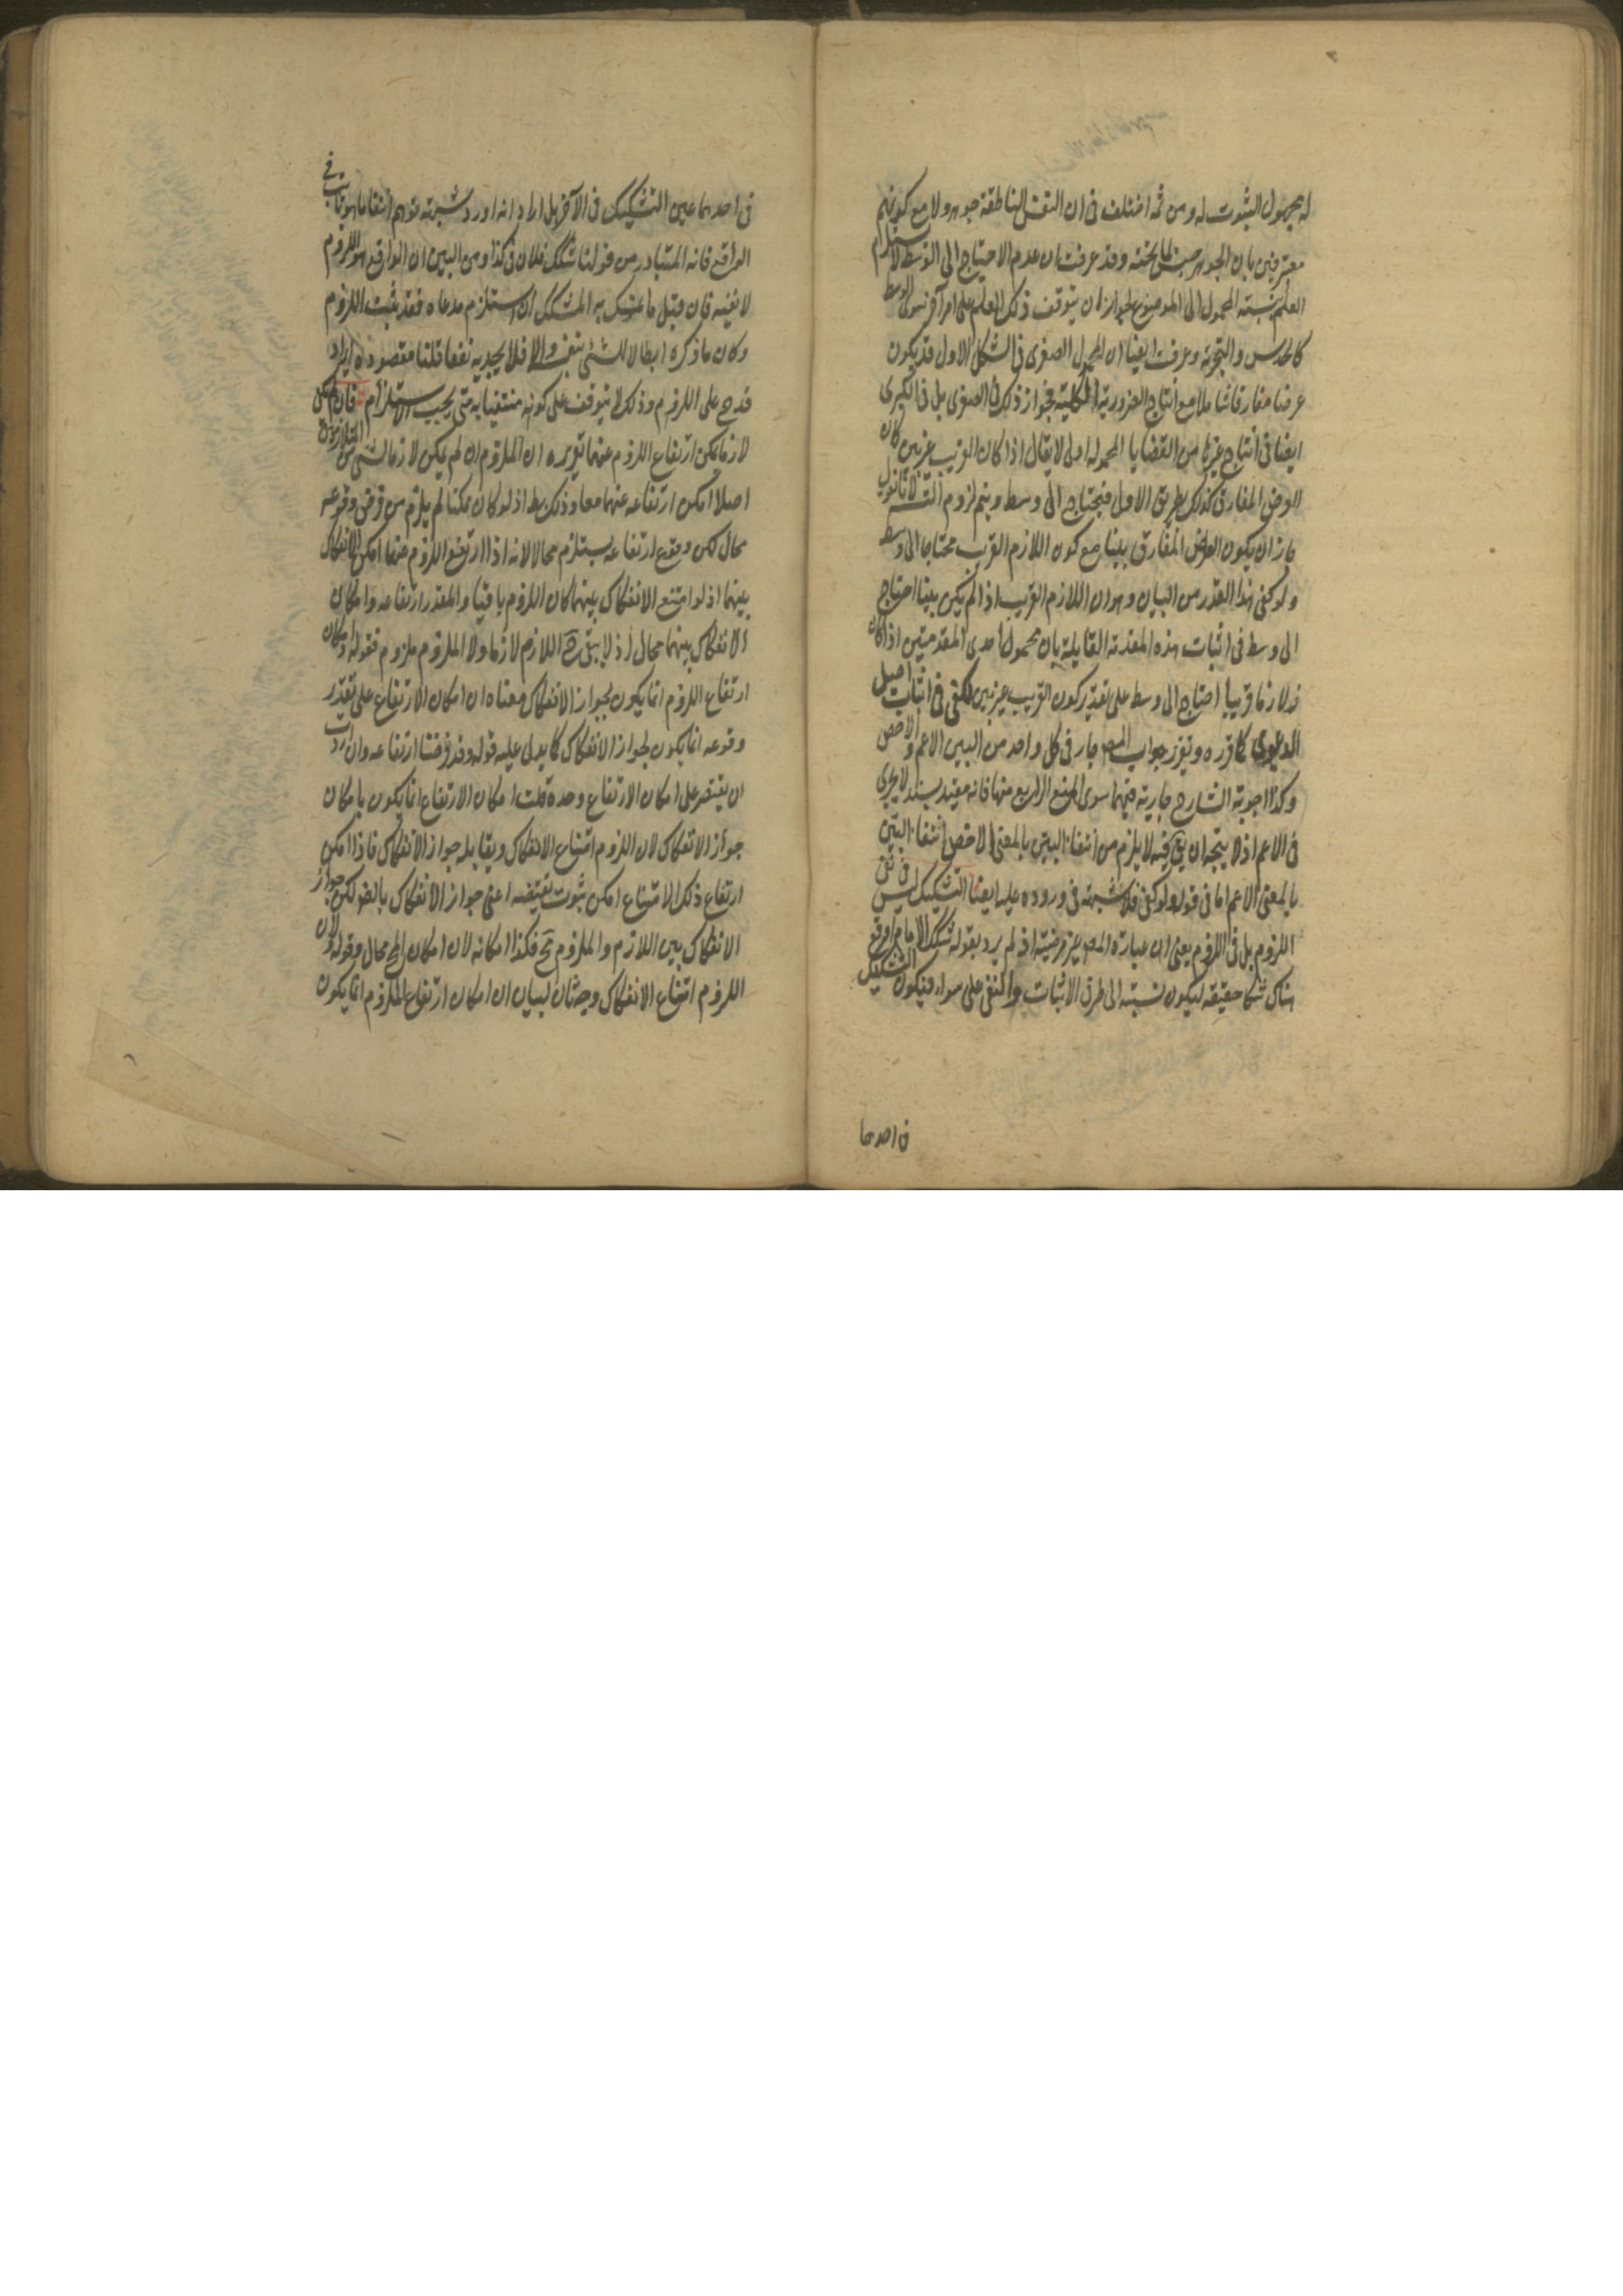 له مجهول الثبوت له ومن ثمه اختلف فى ان النفس الناطقة جوهر ولا مع كونهم
معترفين بان الجوهر جنس لما تحته وقد عرفت ان عدم الاحتياج الى الوسط لا يستلزم
العلم بنسبة المحمول الى الموضوع لجواز ان يتوقف ذلك العلم على امر آخر سوى الوسط
كالحدس والتجربة وعرفت ايضا ان المحمول الصغرى فى الشكل الاول قد يكون
عرضا مفارقا شاملا مع انتاج الضرورية الكلية فجواز ذلك فى الصغرى بل فى الكبرى
ايضا فى انتاج غيرها من القضايا المحمولة اولى لا يقال اذا كان القريب غير بين كان
العرض المفارق كذلك بطريق الاولى فيحتاج الى وسط ويتم لزوم التسلسل لانا نقول
جاز ان يكون العرض المفارق بينا مع كون اللازم القريب محتاجا الى وسط
ولو كفى هذا القدر من البيان وهو ان اللازم القريب اذا لم يكن بينا احتاج
الى وسط فى اثبات هذه المقدمة القايلة بان محمول احدى المقدمتين اذا كان
لازما قريبا احتاج الى وسط على تقدير كون القريب غير بين لكفى فى اثبات اصل
الدعوى كما قرره وتقرير جواب المص جار فى كل واحد من البين الاعم والاخص
وكذا اجوبة الشارح جارية فيهما سوى المنع الرابع منها فانه مقيد بسند لا يجرى
فى الاعم اذ لا يتجه ان يق فيه لا يلزم من انتفاء البين بالمعنى الاخص انتفاء البين
بالمعنى الاعم اما فى قوله ولو كفى فلا شبهة فى وروده عليه ايضا التشكيك ليس فى نفى
اللزوم بل فى اللزوم يعنى ان عبارة المص غير مرضية اذ لم يرد بقوله شكك الامام اوقع
هناك شكا حقيقة ليكون نسبته الى طرفى الاثبات والنفى على سواء فيكون التشكيك
فى احدهما
فى احدهما عين التشكيك فى الآخر بل اراد انه اورد شبهة توهم انتفاء ما هو ثابت فى
الواقع فانه المتبادر من قولنا شكك فلان فى كذا ومن البين ان الواقع هو اللزوم
لا نفيه فان قيل ما تمسك به المشكك ان استلزم مدعاه فقد ثبت اللزوم
وكان ما ذكره ابطالا للشئ بنفسه والا فلا يجديه نفعا قلنا مقصوده ايراد
قدح على اللزوم وذلك لا يتوقف على كونه منتفيا به حتى يجب الاستلزام فان لم يكن
لازما يمكن ارتفاع اللزوم عنهما تقريره ان الملزوم ان لم يكن لازما لشئ من المتلازمين
اصلا امكن ارتفاعه عنهما معا وذلك بط اذ لو كان ممكنا لم يلزم من فرض وقوعه
محال لكن وقوع ارتفاعه يستلزم محالا لانه اذا ارتفع اللزوم عنهما امكن الانفكاك
بينهما اذ لو امتنع الانفكاك بينهما كان اللزوم باقيا والمقدر ارتفاعه وامكان
الانفكاك بينهما محال اذ لا يبقى ح اللازم لازما ولا الملزوم ملزوم فقوله وامكان
ارتفاع اللزوم انما يكون لجواز الانفكاك معناه ان امكان الارتفاع على تقدير
وقوعه انما يكون لجواز الانفكاك كما يدل عليه قوله وقد فرضنا ارتفاعه وان اردت
ان يقتصر على امكان الارتفاع وحده قلت امكان الارتفاع انما يكون بامكان
جواز الانفكاك لان اللزوم امتناع الانفكاك ويقابله جواز الانفكاك فاذا امكن
ارتفاع ذلك الامتناع امكن ثبوت نقيضه اعنى جواز الانفكاك بالضر لكن جواز
الانفكاك بين اللازم والملزوم مح فكذا امكانه لان امكان المح محال وقوله لان
اللزوم امتناع الانفكاك وجه ثان لبيان ان امكان ارتفاع الملزوم انما يكون